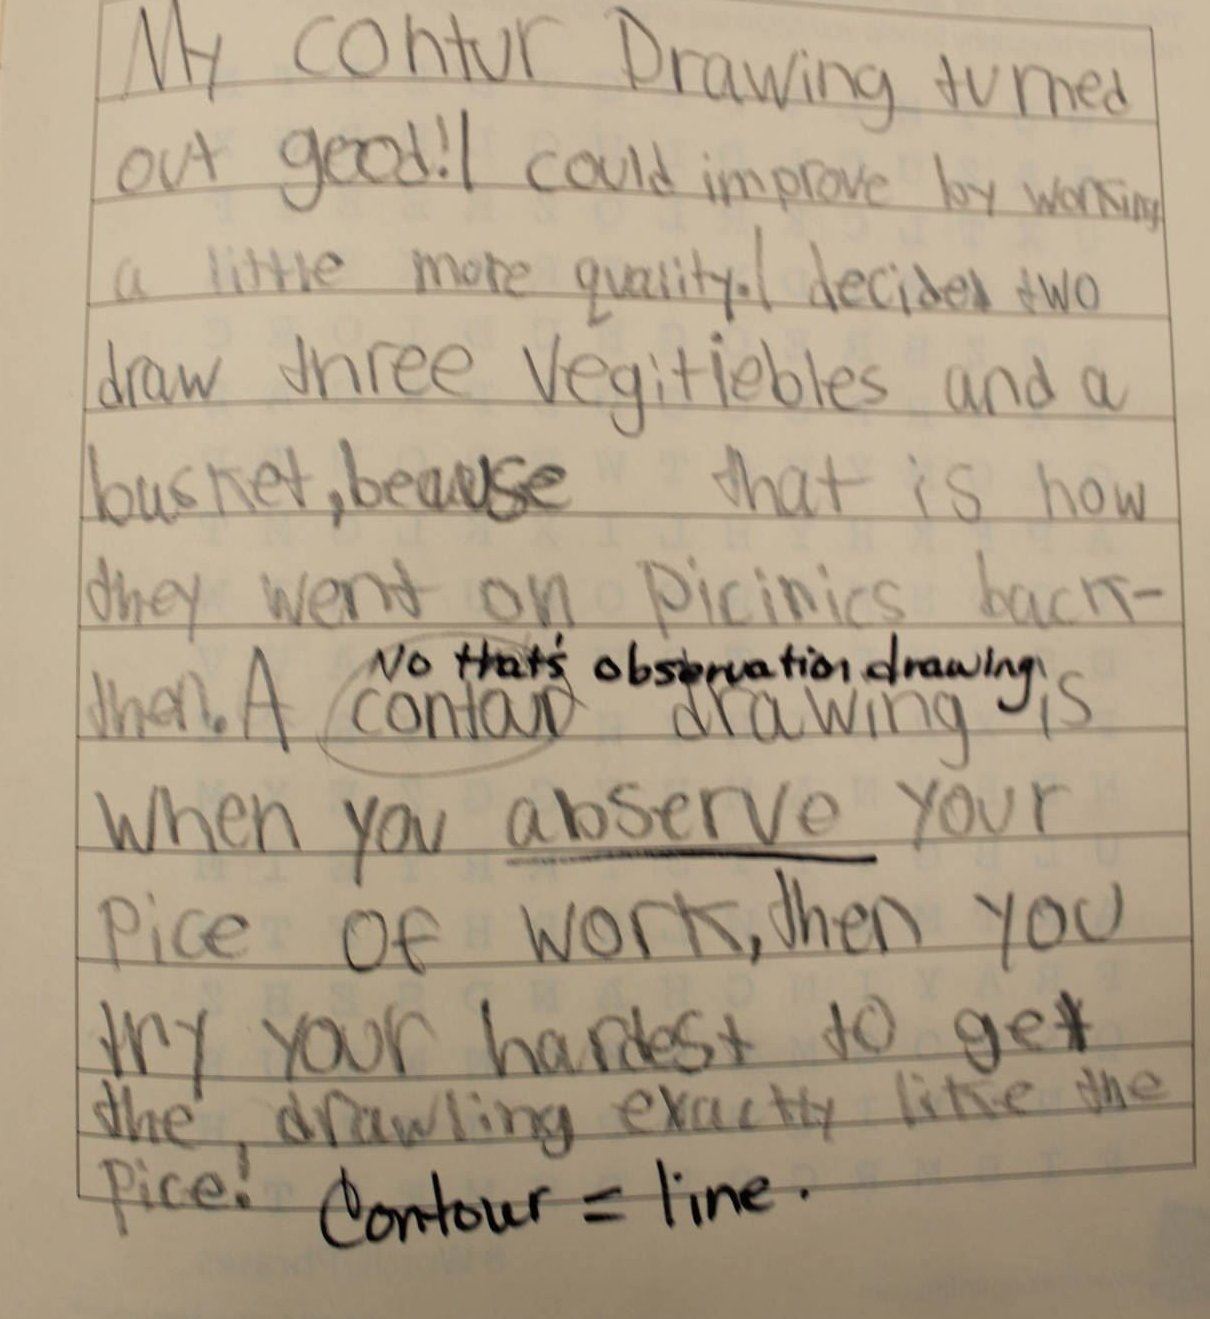 My contur Drawing turned
out good! I could improve by working
a little more quality. I decided two
draw three vegitiebles and a
busket, beause that is how
they went on picinics back-
No that's observation drawing.
then. A contour drawing is
when you abserve your
pice of work, then you
try your hardest to get
the drawling exactly like the
pice!
Contour = line.